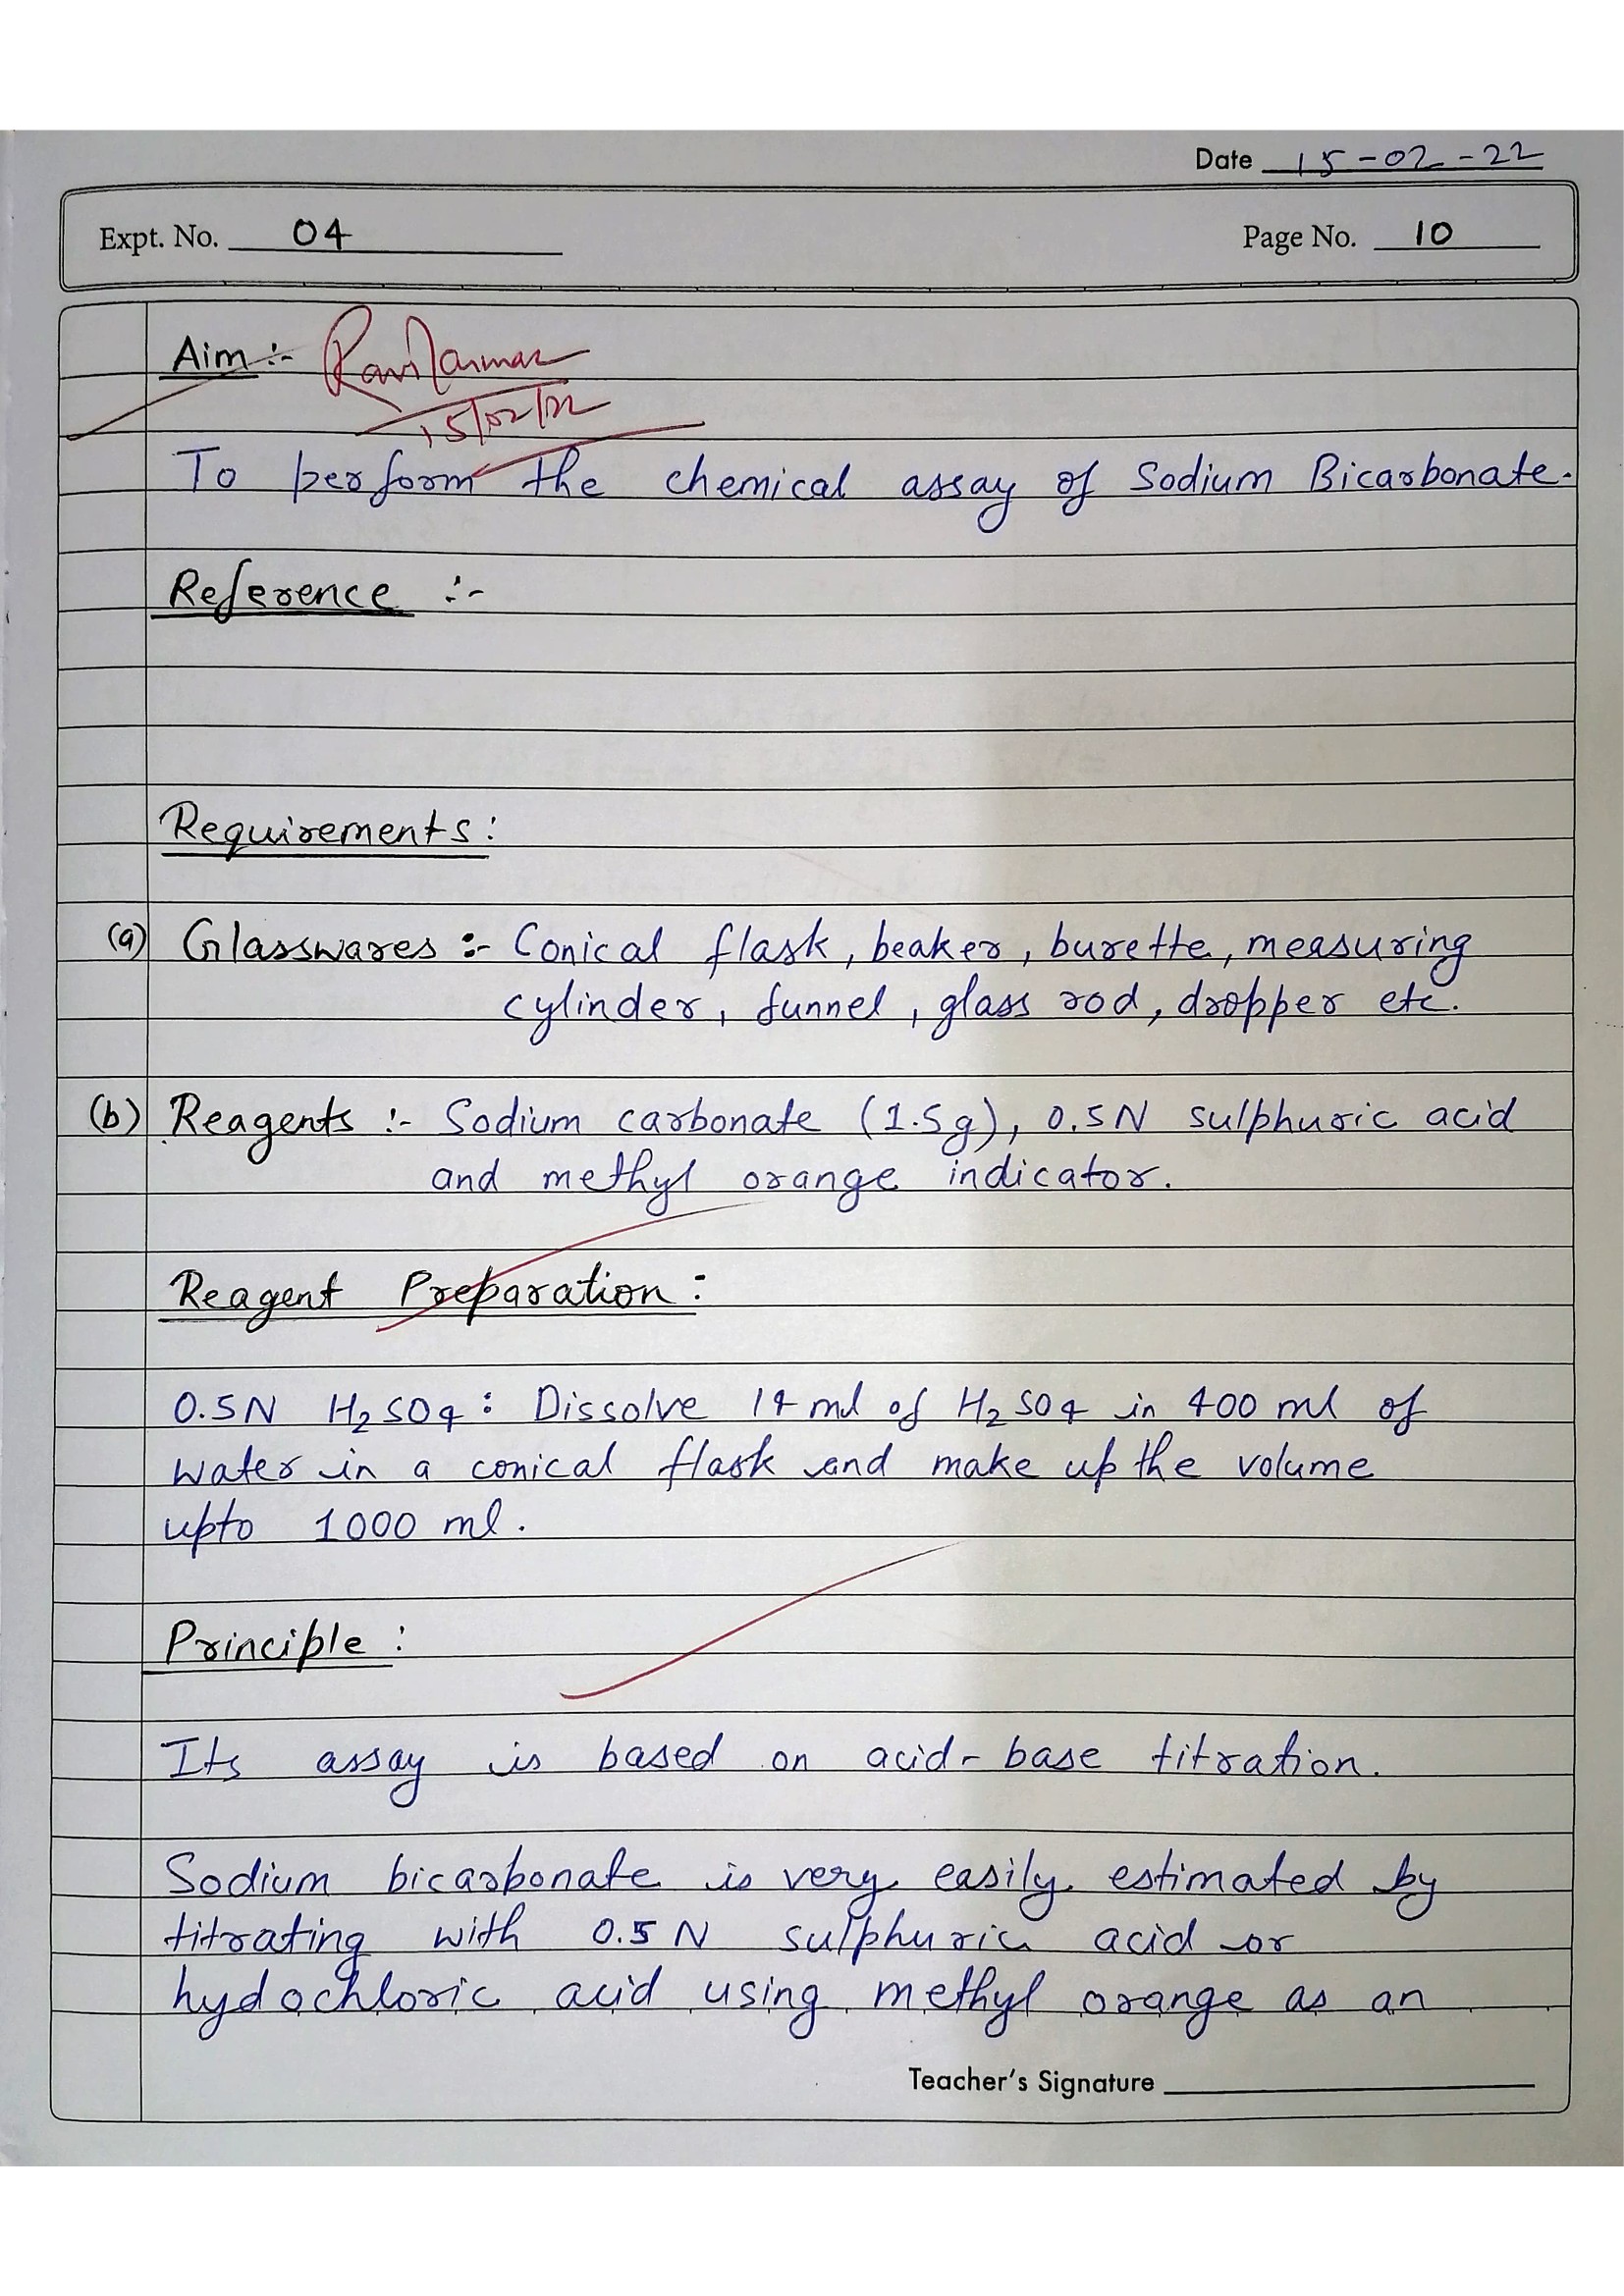 Date 15-02-22
Expt. No. 04
Page No. 10
Aim :-
15/02/22
To perform the chemical assay of Sodium Bicarbonate.
Reference :-
Requirements:
(a) Glasswares :- Conical flask, beaker, burette, measuring
cylinder, funnel, glass rod, dropper etc.
(b) Reagents :- Sodium carbonate (1.5g), 0.5N sulphuric acid
and methyl orange indicator.
Reagent Preparation:
0.5N H2SO4: Dissolve 14 ml of H2SO4 in 400 ml of
water in a conical flask and make up the volume
upto 1000 ml.
Principle:
Its assay is based on acid-base titration.
Sodium bicarbonate is very easily estimated by
titrating with 0.5 N sulphuric acid or
hydochloric acid using methyl orange as an
Teacher's Signature